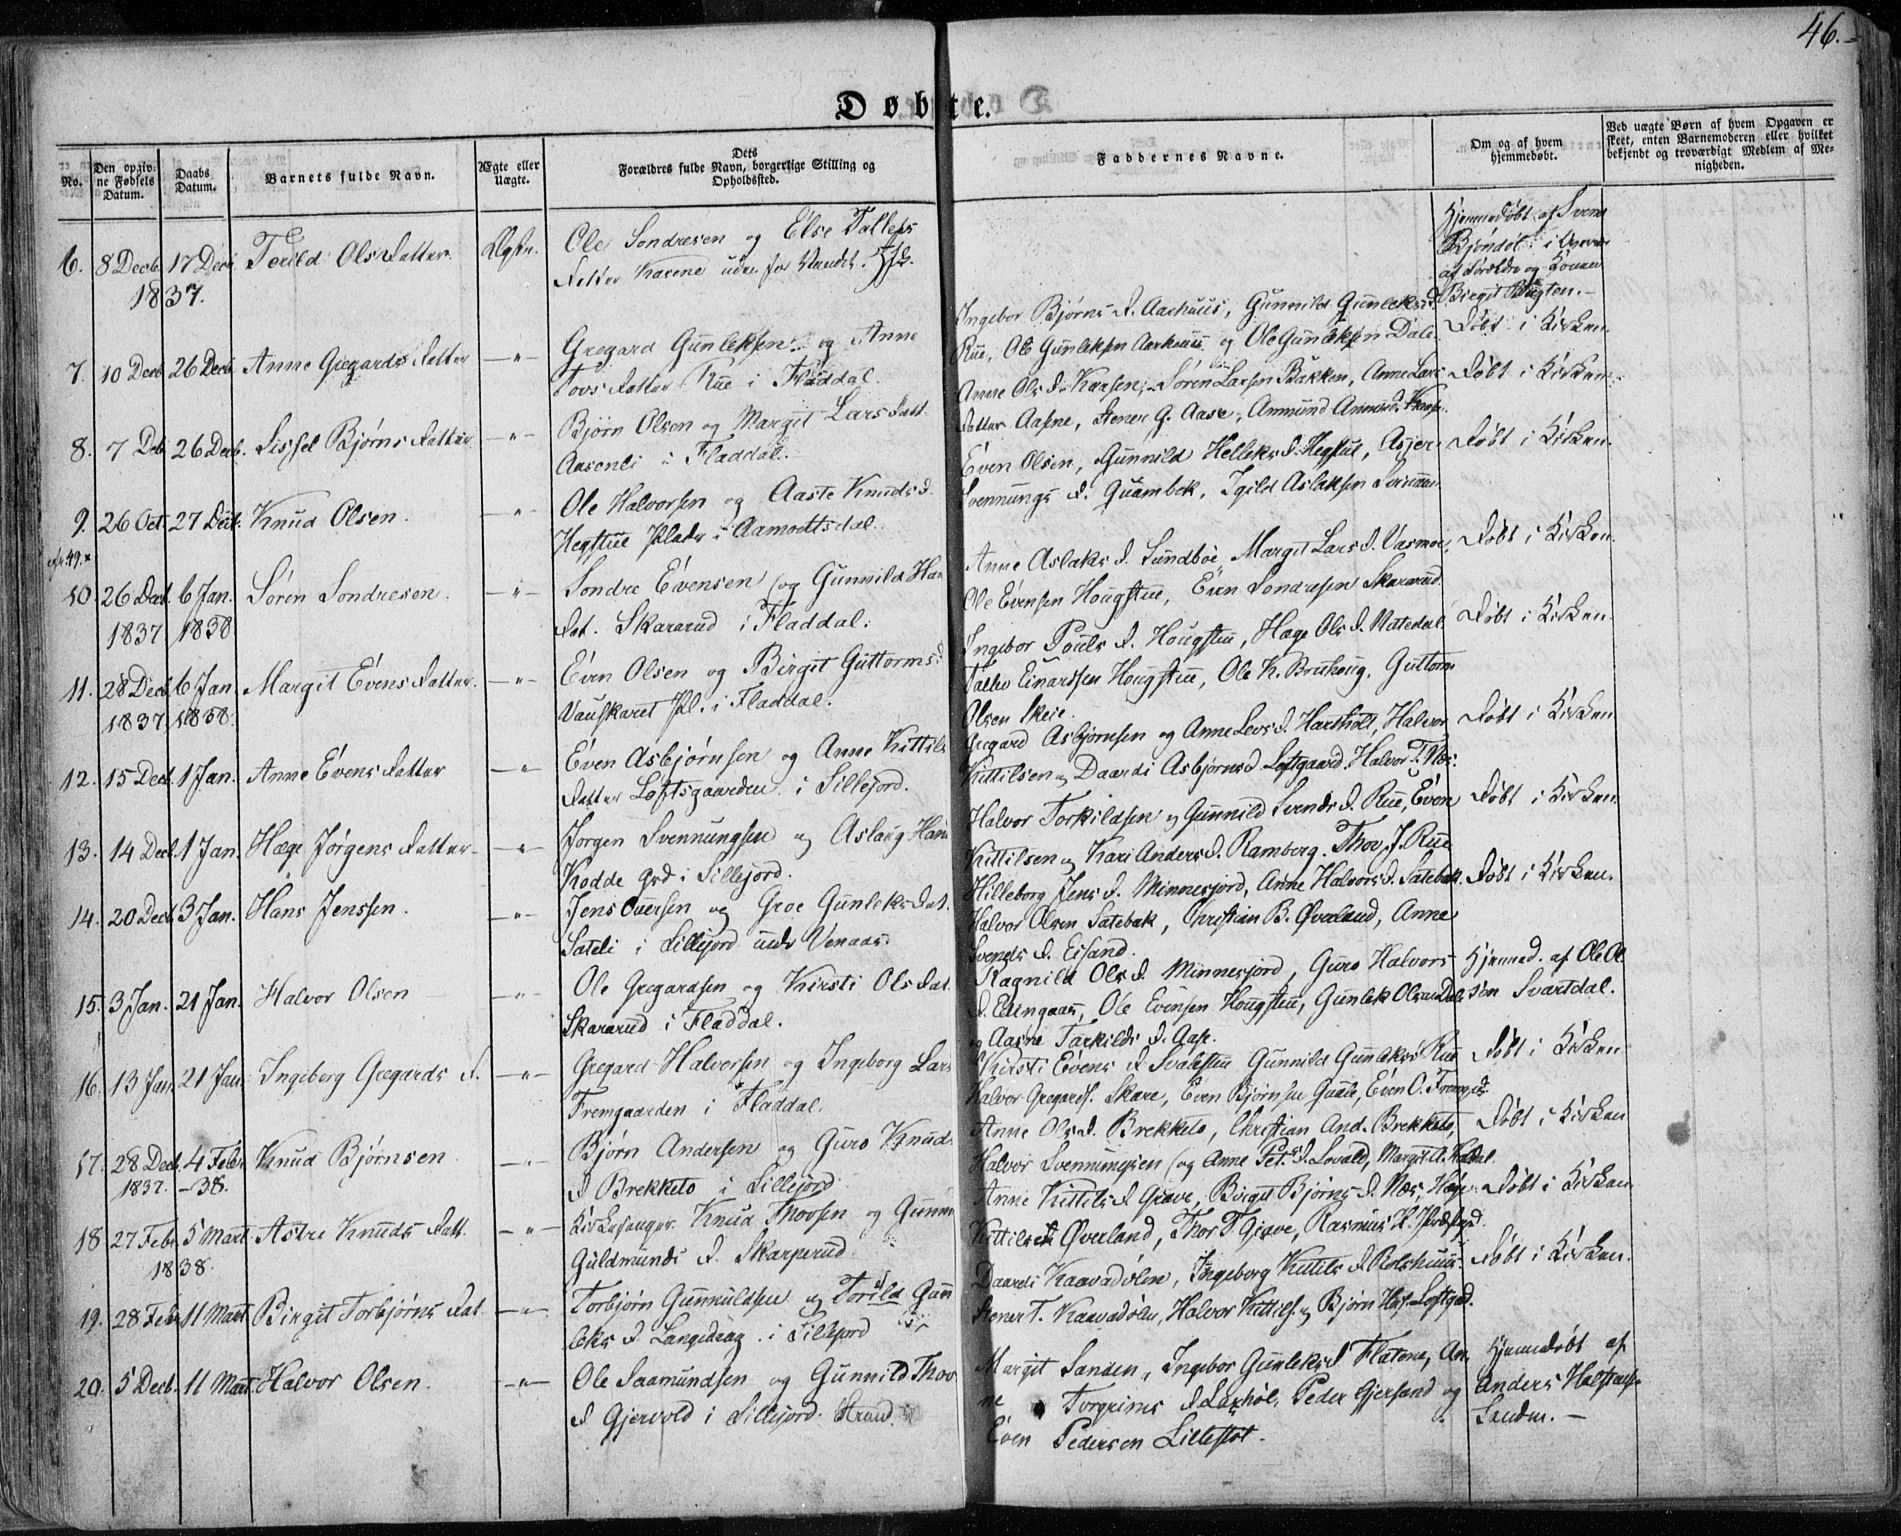 46.
Døbte.
No.
Den opgivne Fødsels Datum.
Daabs Datum.
Barnets fulde Navn.
Ægte eller Uægte.
Dets Forældres fulde Navn, borgerlige Stilling og Opholdssted.
Faddernes Navne.
Om og af hvem hjemmedøbt.
Ved uægte Børn af hvem Opgaven er skeet, enten Barnemoderen eller hvilket bekjendt og troværdigt Medlem af Menigheden.
6. 8 Decb. 17 Decb. Torild Ols Datter. Ægte.
1837.
Ole Sondresen og Else Tallefs
Datter
Hjemmedøbt af Svend
Bjøndøl i
af Forældre og Konen
Birgit
7. 10 Decb 26 Decb. Anne Gregards Datter —"—
Gregard Gunleksen og Anne
Tovs Datter Rue i Fladdal.
Ingebor Bjørns D. Aashuus, Gunnild Gunleks D.
Rue, Ole Gunleksen Aashuus og Ole Gunleksen Dale.
Døbt i Kirken.
8. 7 Deb 26 Decb. Sissel Bjørns Datter —"—
Bjørn Olsen og Margit Lars Datt.
Aasenli i Fladdal.
Anne Ols D. Kaasen, Søren Larsen Bakken, Anne Lars
Datter Aasne, Stener G. Aase, Ammund
Døbt i Kirken.
9. 26 Oct. 27 Decb. Knud Olsen. —"—
Ole Halvorsen og Aaste Knuds D.
Hegstue Plads i Aamodtsdal.
Even Olsen, Gunnild Helleks D. Hegstue, Asjer
Svennungs D. Quambek, Igild Aslaksen
Døbt i Kirken.
49. x
10. 26 Decb. 6 Jan. Søren Sondresen. —"—
1837 1838
Sondre Evensen og Gunnild Han
Dat. Skararud i Fladdal.
Anne Aslaks D. Sundbøe, Margit Lars D. Vasmoe,
Ole Evensen Hougstue, Even Sondresen Skararud.
Døbt i Kirken.
11. 28 Decb 6 Jan Margit Evens Datter. —"—
1837. 1838.
Even Olsen og Birgit Guttorms D
Vauskaret Pl. i Fladdal.
Ingebor Pouls D. Hougstue, Hæge Ols D. Natedal
Tallev Einarssen Hougstue, Ole K. Bruhoug, Guttorm
Olsen Skeie.
Døbt i Kirken.
12. 15 Decb. 1 Jan. Anne Evens Datter —"—
Even Asbjørnsen og Anne Kittils
Datter Loftsgaarden i Sillejord.
Gregard Asbjørnsen og Anne Levs D. Hartholt, Halvor
Kittilsen og Daardi Asbjørns D Loftgaard, Halvor T. Næs.
Døbt i Kirken
13. 14 Decb. 1 Jan Hæge Jørgens Datter —"—
Jørgen Svennungsen og Aslaug Hans
Kodde Grd i Sillejord.
Halvor Torkildsen og Gunnild Svends D. Rue, Even
Kittilsen og Kari Anders D. Ramberg. Thov J. Rue
Døbt i Kirken.
14. 20 Decb. 3 Jan. Hans Jenssen. —"—
Jens Ouversen og Groe Gunleks Dat.
Sateli i Sillejord und. Venaas.
Hilleborg Jens D. Minnesjord, Anne Halvors D. Satebak
Halvor Olsen Satebak, Christian B. Øverland, Anne
Svends D. Eisand.
Døbt i Kirken.
15. 3 Jan. 21 Jan. Halvor Olsen —"—
Ole Gregardsen og Kirsti Ols Dat.
Skararud i Fladdal.
Ragnild Ols D. Minnesjord, Guro Halvors
D. Edengaas, Ole Evensen Hougstue, Gunlek Olsen Dale
og Aasne Tarkilds D. Aase.
Hjemmed. af Ole Ol
sen Svartdal.
16. 13 Jan. 21 Jan. Ingeborg Gregards D. —"—
Gregard Halvorsen og Ingeborg Lars
Fremgaarden i Fladdal.
Kirsti Evens D Svalestue Gunnild Gunleks Rue
Halvor Gregards. Skare, Even Bjørnsen Quale, Even O. Fremgrd.
Døbt i Kirken
17. 28 Decb. 4 Febr Knud Bjørnsen —"—
1837. –38.
Bjørn Andersen og Guro Knuds
D Brekketo i Sillejord
Anne Ols D. Brekketo, Christian And. Brekketo,
Halvor Svennungsen og Anne Pet. D. Lovald, Margit A.
Døbt i Kirken
18 27 Febr. 5 Mart. Astri Knuds Datt. —"—
1838.
Kirkesanger Knud Thovsen og Gunn
Guldmunds D. Skarperud.
Anne Kittils D Græve, Birgit Bjørns D. Næs, Hæge
Kittils D Øverland, Thor T. Græve, Rasmus H. Præstgrd.
Døbt i Kirken
19. 28 Febr 11 Mart Birgit Torbjørns Dat —"—
Torbjørn Gunnuldsen og Torild Gun
leks D. Langedrag i Sillejord
Daardi Kaavadølen, Ingeborg Kittils D Rolshuus
Stener T. Kaavadølen, Halvor Kittils. og Bjørn Loftsgd.
Døbt i Kirken.
20. 5 Decb. 11 Mart. Halvor Olsen. —"—
Ole Saamundsen og Gunnild Thov
D Gjervold i Sillejord. Strand.
Margit Sanden, Ingebor Gunleks D Flatene, An
ne Torgrims D Laxhøl, Peder Gjersand og
Even Pedersen Lillestøt.
Hjemmedøbt af
Anders
Sanden. —